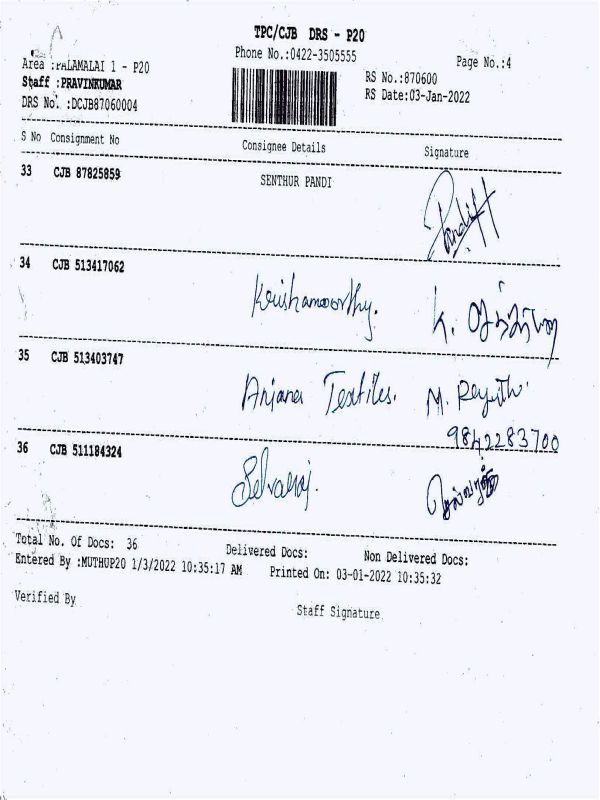 TPC/CJB DRS - P20
Phone No.:0422-3505555
Page No.:4
Area :PALAMALAI 1 - P20
Staff :PRAVINKUMAR
DRS No. :DCJB87060004
RS No.:870600
RS Date:03-Jan-2022
S No Consignment No Consignee Details Signature
33 CJB 87825859 SENTHUR PANDI
34 CJB 513417062 Krishamoorthy. K.
35 CJB 513403747 Anjana Textiles. M.
9842283700
36 CJB 511184324 Selvaraj. செல்வராஜ்
Total No. Of Docs: 36 Delivered Docs: Non Delivered Docs:
Entered By :MUTHUP20 1/3/2022 10:35:17 AM Printed On: 03-01-2022 10:35:32
Verified By Staff Signature